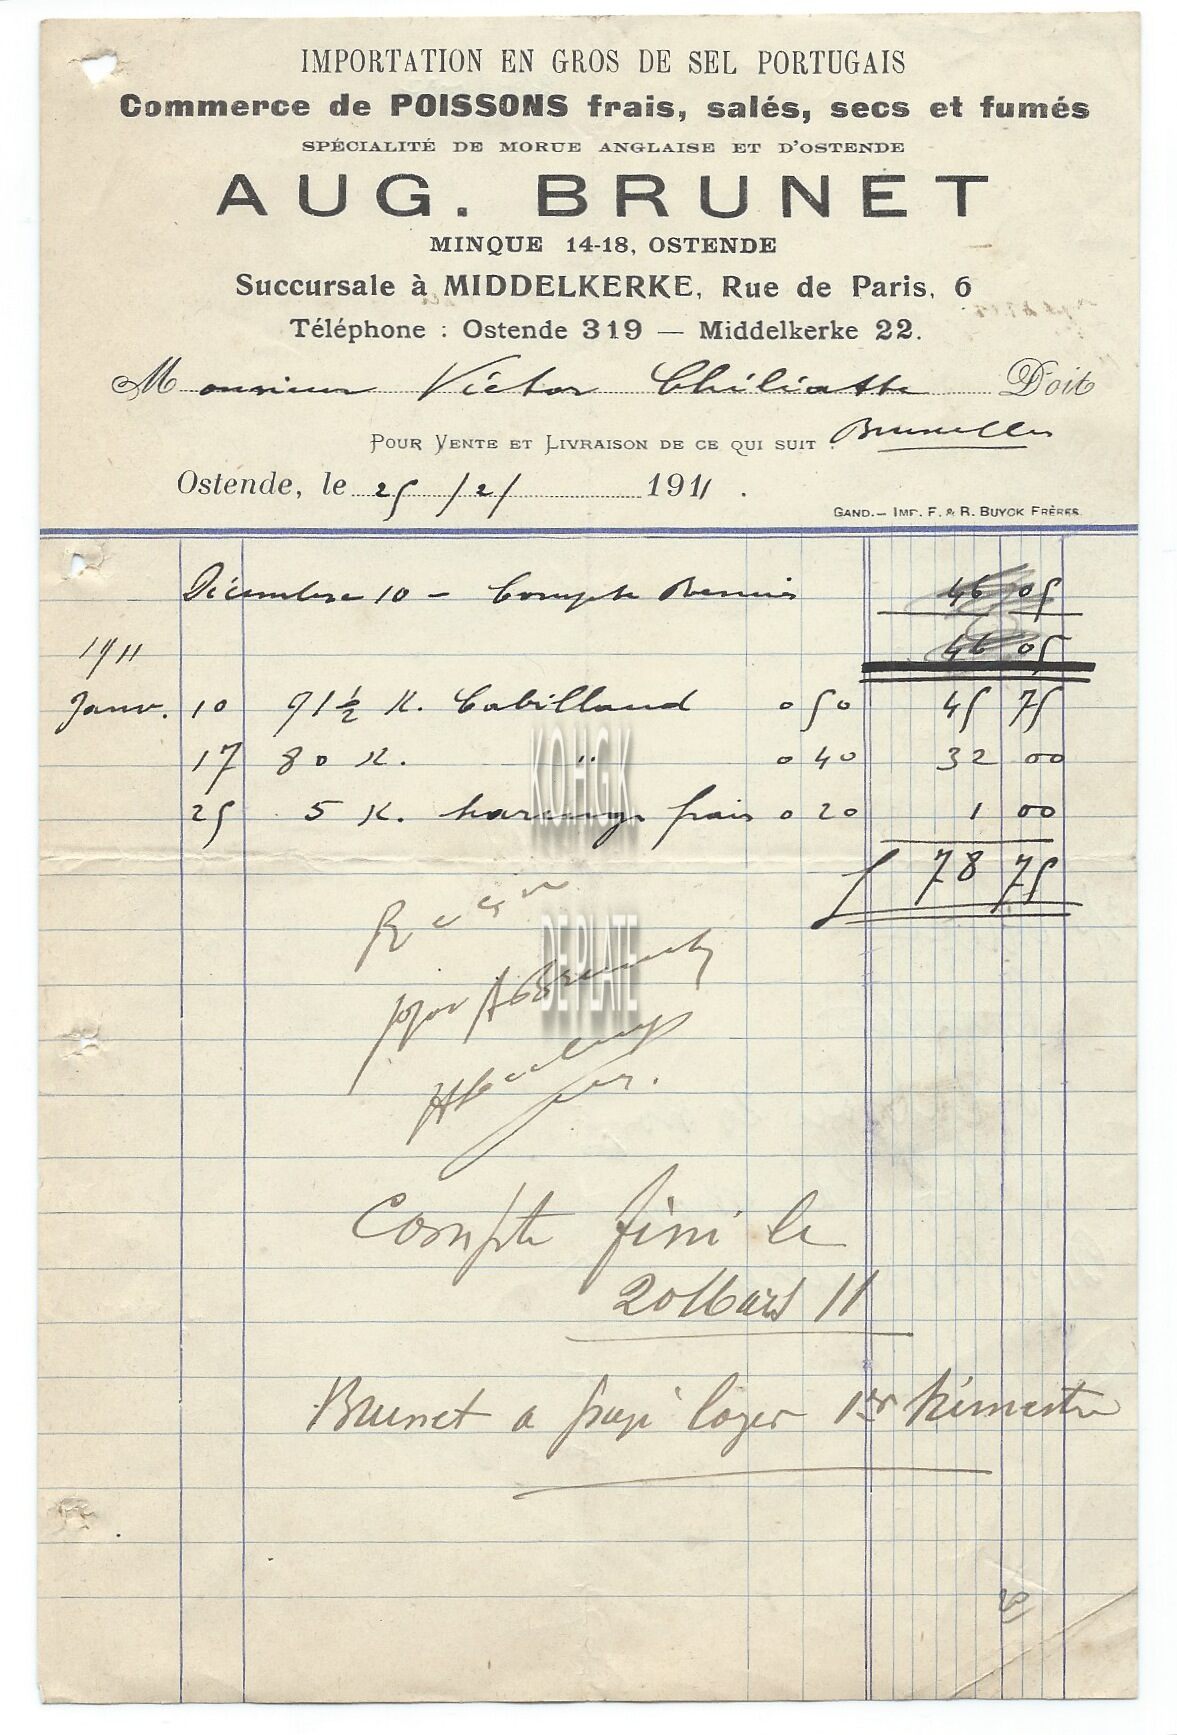 IMPORTATION EN GROS DE SEL PORTUGAIS
Commerce de POISSONS frais, salés, secs et fumés
SPÉCIALITÉ DE MORUE ANGLAISE ET D'OSTENDE
AUG. BRUNET
MINQUE 14-18, OSTENDE
Succursale à MIDDELKERKE, Rue de Paris, 6
Téléphone : Ostende 319 — Middelkerke 22.
Monsieur Victor Doit
POUR VENTE ET LIVRAISON DE CE QUI SUIT : Bruxelles
Ostende, le 25/2/ 1911.
GAND.— IMP. F. & R. BUYCK FRÈRES.
Décembre 10 - Compte Remis 46 05
1911 46 05
Janv. 10 91 ½ K. Cabillaud 0 50 45 75
17 80 K. " 0 40 32 00
25 5 K. harengs frais 0 20 1 00
f 78 75
KO.H.G.K.
DE PLATE
pour A Brunet
Compte fini le
20 Mars 11
Brunet a payé loyer 1er trimestre